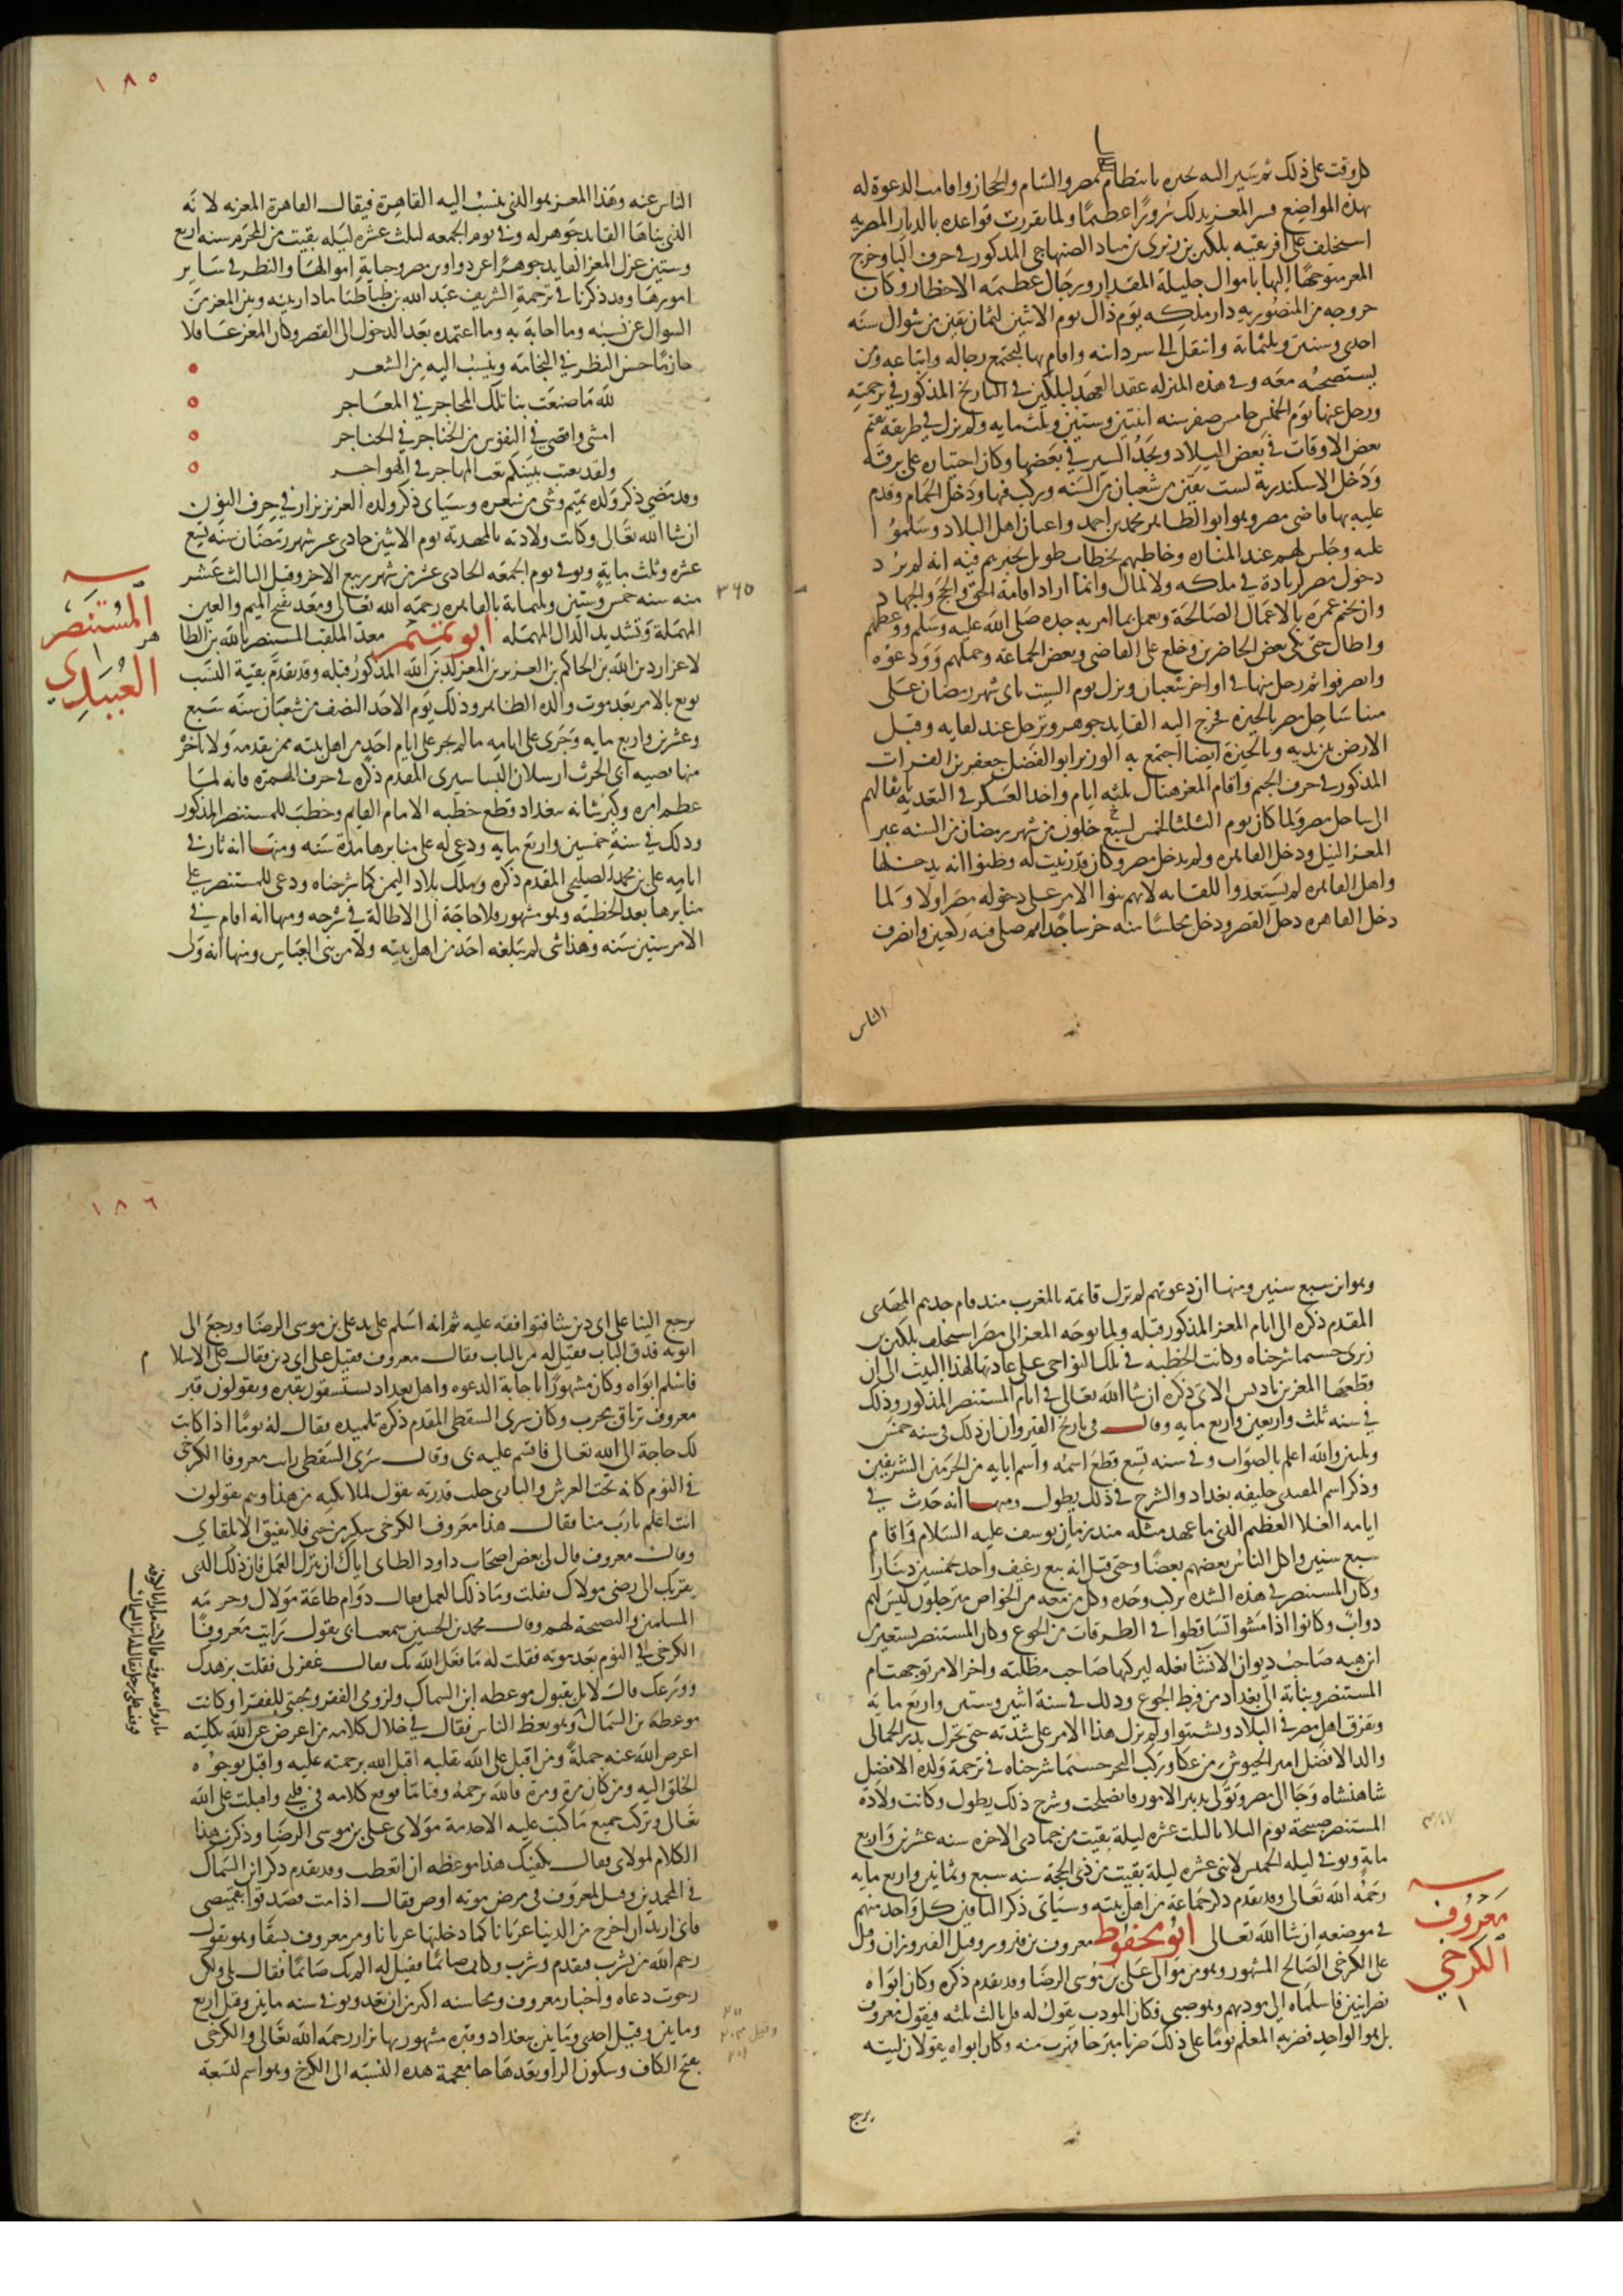 كل وقت على ذلك ثم سير اليه يخبره بانتظام مصر والشام والحجاز واقامت الدعوة له
بهذه المواضع فسر المعز بذلك سرورا عظيما ولما تقررت قواعده بالديار المصريه
استخلف على افريقيه بلكين بن زيرى بن مناد الصنهاجى المذكور فى حرف البا وخرج
المعز متوجها اليها باموال جليلة المقدار ورجال عظيمه الاخطار وكان
خروجه من المنصوريه دار ملكه يوم ذاك يوم الاثنين لثمان بقين من شوال سنه
احدى وستين وثلثمائة وانتقل الى سردانيه واقام بها ليجتمع رجاله واتباعه ومن
يستصحبه معه وفى هذه المنزله عقد العهد لبلكين فى التاريخ المذكور فى ترجمته
ورحل عنها يوم الخميس خامس صفر سنه اثنتين وستين وثلث مايه ولم يزل فى طريقه يقيم
بعض الاوقات فى بعض البلاد ويجد السير فى بعضها وكان اجتيازه على برقه
ودخل الاسكندرية لست بقين من شعبان من السنه وركب فيها ودخل الحمام وقدم
عليه بها قاضى مصر وهو ابو الطاهر محمد بن احمد واعيان اهل البلاد وسلموا
عليه وجلس لهم عند المناره وخاطبهم بخطاب طويل يخبرهم فيه انه لم يرد
دخول مصر لزيادة فى ملكه ولا لمال وانما اراد اقامة الحق والحج والجهاد
وان يختم عمره بالاعمال الصالحة ويعمل بما امر به جده صلى الله عليه وسلم ووعظهم
واطال حتى بكى بعض الحاضرين وخلع على القاضى وبعض الجماعة وحملهم وودعوه
وانصرفوا ثم رحل منها فى اواخر شعبان ونزل يوم السبت ثانى شهر رمضان على
مينا ساحل مصر بالجيزة فخرج اليه القايد جوهر وترجل عند لقايه وقبل
الارض بين يديه وبالجيزة ايضا اجتمع به الوزير ابو الفضل جعفر بن الفرات
المذكور فى حرف الجيم واقام المعز هناك ثلثه ايام واخذ العسكر فى التعديه باثقالهم
الى ساحل مصر ولما كان يوم الثلثا لخمس لسبع خلون من شهر رمضان من السنه عبر
المعز النيل ودخل القاهره ولم يدخل مصر وكان قد زينت له وظنوا انه يدخلها
واهل القاهره لم يستعدوا للقايه لانهم بنوا الامر على دخوله مصر اولا ولما
دخل القاهره دخل القصر ودخل مجلسا منه خر ساجدا ثم صلى فيه ركعتين وانصرف
الناس
١٨٥
الناس عنه وهذا المعز هو الذى ينسب اليه القاهرة فيقال القاهرة المعزيه لانه
الذى بناها القايد جوهر له وفى يوم الجمعه لثلث عشره ليله بقيت من المحرم سنه اربع
وستين عزل المعز القايد جوهرا عن دواوين مصر وجباية اموالها والنظر فى ساير
امورها وقد ذكرنا فى ترجمة الشريف عبد الله بن طباطبا ما دار بينه وبين المعز من
السوال عن نسبه وما اجابه به وما اعتمده بعد الدخول الى القصر وكان المعز عاقلا
حازما حسن النظر فى النجامة وينسب اليه من الشعر
لله ما صنعت بنا تلك المحاجر فى المعاجر
امضى واقضى فى النفوس من الخناجر فى الحناجر
ولقد تعبت ببينكم تعب المهاجر فى الهواجر
وقد مضى ذكر ولده تميم وشى من شعره وسياتى ذكر ولده العزيز نزار فى حرف النون
ان شا الله تعالى وكانت ولادته بالمهدية يوم الاثنين حادى عشر شهر رمضان سنه تسع
عشره وثلث مايه وتوفى يوم الجمعه الحادى عشر من شهر ربيع الاخر وقيل الثالث عشر
منه سنه خمس وستين وثلثماية بالقاهره رحمه الله تعالى ومعد بفتح الميم والعين
٣٦٥
المهملة وتشديد الدال المهمله ابو تميم معد الملقب المستنصر بالله بن الظا
المستنصر
العبيدى
لاعزاز دين الله بن الحاكم بن العزيز بن المعز لدين الله المذكور قبله وقد تقدم بقية النسب
بويع بالامر بعد موت والده الظاهر وذلك يوم الاحد النصف من شعبان سنه سبع
وعشرين واربع مايه وجرى على ايامه ما لم يجر على ايام احد من اهل بيته ممن تقدمه ولا تاخر
منها قصيه ابى الحرث ارسلان البساسيرى المقدم ذكره فى حرف الهمزه فانه لما
عظم امره وكبر شانه ببغداد قطع خطبه الامام القايم وخطب للمستنصر المذكور
وذلك فى سنة خمسين واربع مايه ودعى له على منابرها مدة سنه ومنها انه ثار فى
ايامه على بن محمد الصليحى المقدم ذكره وملك بلاد اليمن كما شرحناه ودعى للمستنصر على
منابرها بعد الخطبه وهو مشهور ولا حاجة الى الاطالة فى شرحه ومنها انه اقام فى
الامر ستين سنه وهذا شى لم يبلغه احد من اهل بيته ولا من بنى العباس ومنها انه ولى
وهو ابن سبع سنين ومنها ان دعوتهم لم تزل قائمة بالمغرب منذ قام جدهم المهدى
المقدم ذكره الى ايام المعز المذكور قبله ولما توجه المعز الى مصر استخلف بلكين بن
زيرى حسبما شرحناه وكانت الخطبه فى تلك النواحى على عادتها لهذا البيت الى ان
قطعها المعز بن باديس الاتى ذكره ان شا الله تعالى فى ايام المستنصر المذكور وذلك
فى سنه ثلث واربعين واربع مايه وقال فى تاريخ القيروان ان ذلك فى سنه خمس
وثلثين والله اعلم بالصواب وفى سنه تسع قطع اسمه واسم ابايه من الحرمين الشريفين
وذكر اسم المقتدى خليفه بغداد والشرح فى ذلك يطول ومنها انه حدث فى
ايامه الغلا العظيم الذى ما عهد مثله منذ زمان يوسف عليه السلام واقام
سبع سنين واكل الناس بعضهم بعضا وحتى قيل انه بيع رغيف واحد بخمسين دينارا
وكان المستنصر فى هذه الشده يركب وحده وكل من معه من الخواص مترجلون ليس لهم
دواب وكانوا اذا مشوا تساقطوا فى الطرقات من الجوع وكان المستنصر يستعير من
ابن هبه صاحب ديوان الانشا بغله ليركبها صاحب مظلته واخر الامر توجهت ام
المستنصر وبناته الى بغداد من فرط الجوع وذلك فى سنة اثنين وستين واربع مايه
وتفرق اهل مصر فى البلاد وتشتتوا ولم يزل هذا الامر على شدته حتى تحرك بدر الجمالى
والد الافضل امير الجيوش من عكا وركب البحر حسبما شرحناه فى ترجمة ولده الافضل
شاهنشاه وجا الى مصر وتولى تدبير الامور فانصلحت وشرح ذلك يطول وكانت ولادة
المستنصر صبيحة يوم الثلاثا لثلث عشره ليلة بقيت من جمادى الاخره سنه عشرين واربع
مايه وتوفى ليله الخميس لاثنى عشره ليلة بقيت من ذى الحجة سنه سبع وثمانين واربع مايه
رحمه الله تعالى وقد تقدم ذكر جماعة من اهل بيته وسياتى ذكر الباقين كل واحد منهم
فى موضعه ان شا الله تعالى ابو محفوظ معروف بن فيروز وقيل الفيروزان وقيل
معروف
الكرخي
على الكرخى الصالح المشهور وهو من موالى على بن موسى الرضا وقد تقدم ذكره وكان ابواه
نصرانيين فاسلماه الى مودبهم وهو صبى فكان المودب يقول له قل ثالث ثلثه فيقول معروف
بل هو الواحد فضربه المعلم يوما على ذلك ضربا مبرحا فهرب منه وكان ابواه يقولان ليته
يرجع
١٨٦
يرجع الينا على اى دين شا فنوافقه عليه ثم انه اسلم على يد على بن موسى الرضا ورجع الى
ابويه فدق الباب فقيل له من بالباب فقال معروف فقيل على اى دين فقال على الاسلام
فاسلم ابواه وكان مشهورا باجابة الدعوه واهل بغداد يستسقون بقبره ويقولون قبر
معروف ترياق مجرب وكان سرى السقطى المقدم ذكره تلميذه فقال له يوما اذا كانت
لك حاجة الى الله تعالى فاقسم عليه بى وقال سرى السقطى رايت معروفا الكرخى
فى النوم كانه تحت العرش والبارى جلت قدرته يقول لملائكته من هذا وهم يقولون
انت اعلم يا رب منا فقال هذا معروف الكرخى سكر من حبى فلا يفيق الا بلقاي
وقال معروف قال لى بعض اصحاب داود الطاى اياك ان تترك العمل فان ذلك الذى
يقربك الى رضى مولاك فقلت وما ذلك العمل فقال دوام طاعة مولاك وحرمه
المسلمين والنصيحة لهم وقال محمد بن الحسين سمعت ابى يقول رايت معروفا
الكرخى فى النوم بعد موته فقلت له ما فعل الله بك فقال غفر لى فقلت بزهدك
وورعك قال لا بل بقبول موعظه ابن السماك ولزومى الفقر ومحبتى للفقرا وكانت
موعظة بن السماك وهو يعظ الناس فقال فى خلال كلامه من اعرض عن الله بكليته
اعرض الله عنه جملة ومن اقبل على الله بقلبه اقبل الله برحمته عليه واقبل بوجوه
الخلق اليه ومن كان مرة ومرة فالله يرحمه وقتا ما فوقع كلامه فى قلبى واقبلت على الله
تعالى وتركت جميع ما كنت عليه الا خدمة مولاى على بن موسى الرضا وذكرت هذا
الكلام لمولاى فقال يكفيك هذا موعظه ان اتعظت وقد تقدم ذكر ابن السماك
فى المحمدين وقيل لمعروف فى مرض موته اوص فقال اذا مت فتصدقوا بقميصى
فانى اريد ان اخرج من الدنيا عريانا كما دخلتها عريانا ومر معروف بسقا وهو يقول
رحم الله من شرب فتقدم وشرب وكان صائما فقيل له الم تك صائما فقال بلى ولكن
رجوت دعاه واخبار معروف ومحاسنه اكثر من ان تعد وتوفى سنه مايتين وقيل اربع
ومايتين وقيل احدى ومايتين ببغداد وقبره مشهور بها يزار رحمه الله تعالى والكرخى
بفتح الكاف وسكون الرا وبعدها خا معجمة هذه النسبه الى الكرخ وهو اسم لتسعة